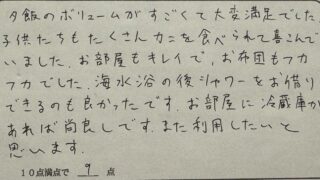 夕飯のボリュームがすごくて大変満足でした。
子供たちもたくさんカニを食べられて喜こんで
いました。お部屋もキレイで、お布団もフカ
フカでした。海水浴の後シャワーをお借り
できるのも良かったです。お部屋に冷蔵庫が
あれば尚良しです。また利用したいと
思います。
10点満点で 9 点